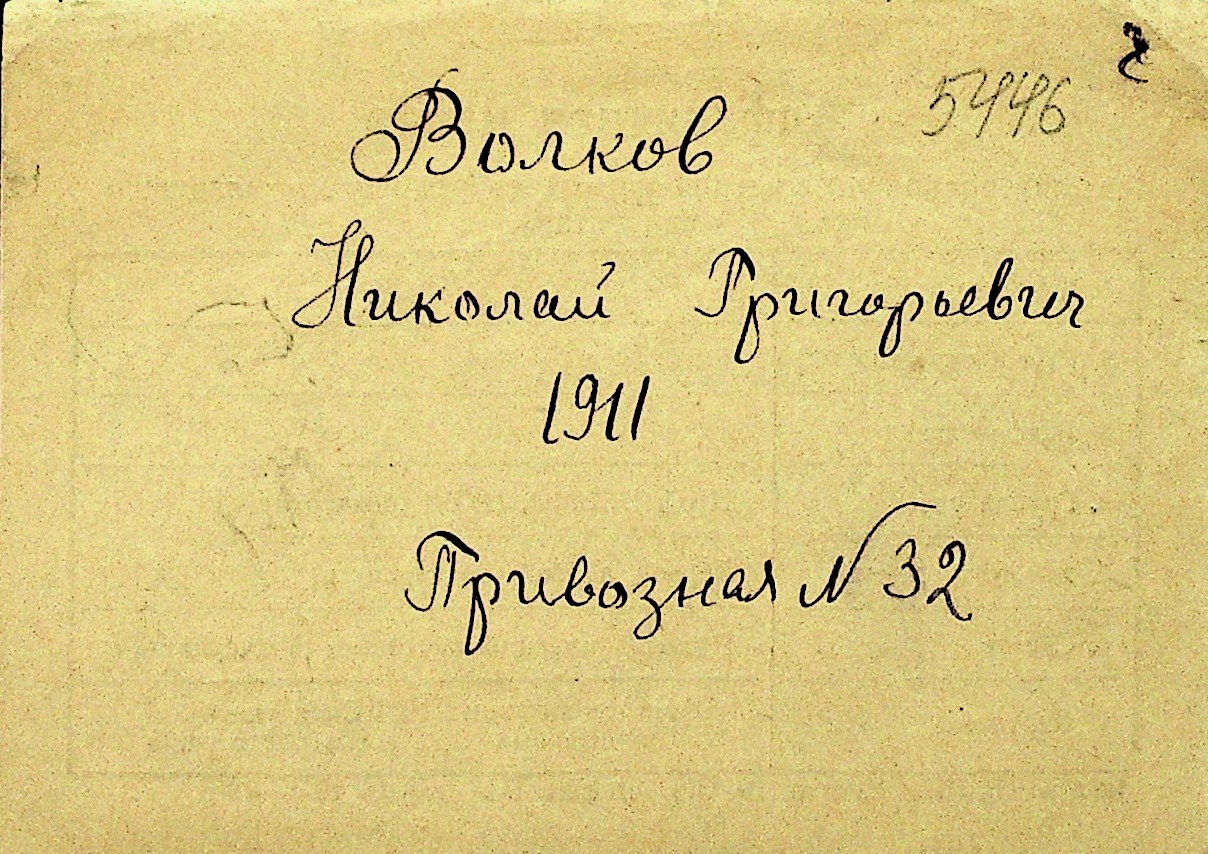 5446
Волков
Николай Григорьевич
1911
Привозная № 32